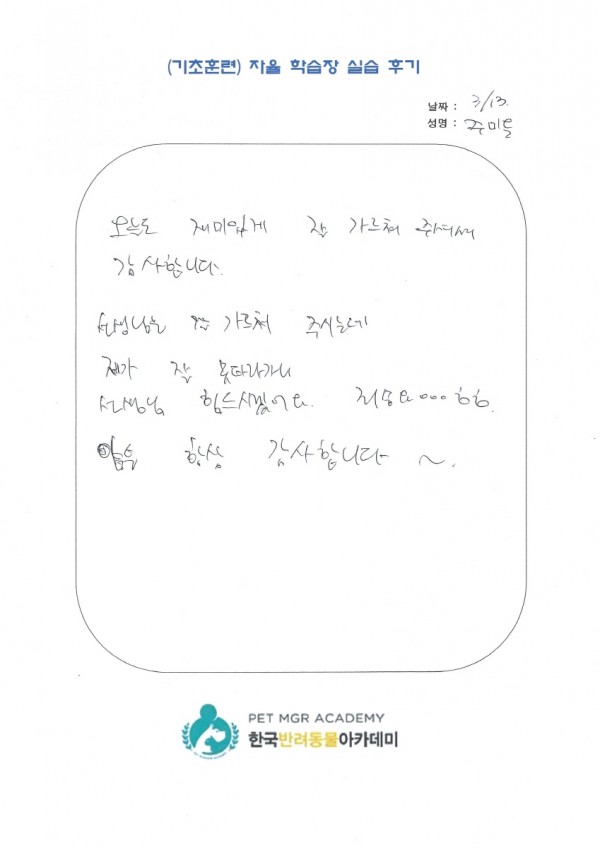 (기초훈련) 자율 학습장 실습 후기
날짜 : 3/13.
성명 : 주미들
오늘도 재미있게 잘 가르쳐 주셔서
감사합니다.
선생님은 잘 가르쳐 주시는데
제가 잘 못따라가니
선생님 힘드시겠어요. 죄송요ooo ㅎㅎ.
항상 감사합니다 ~.
PET MGR ACADEMY
한국반려동물아카데미